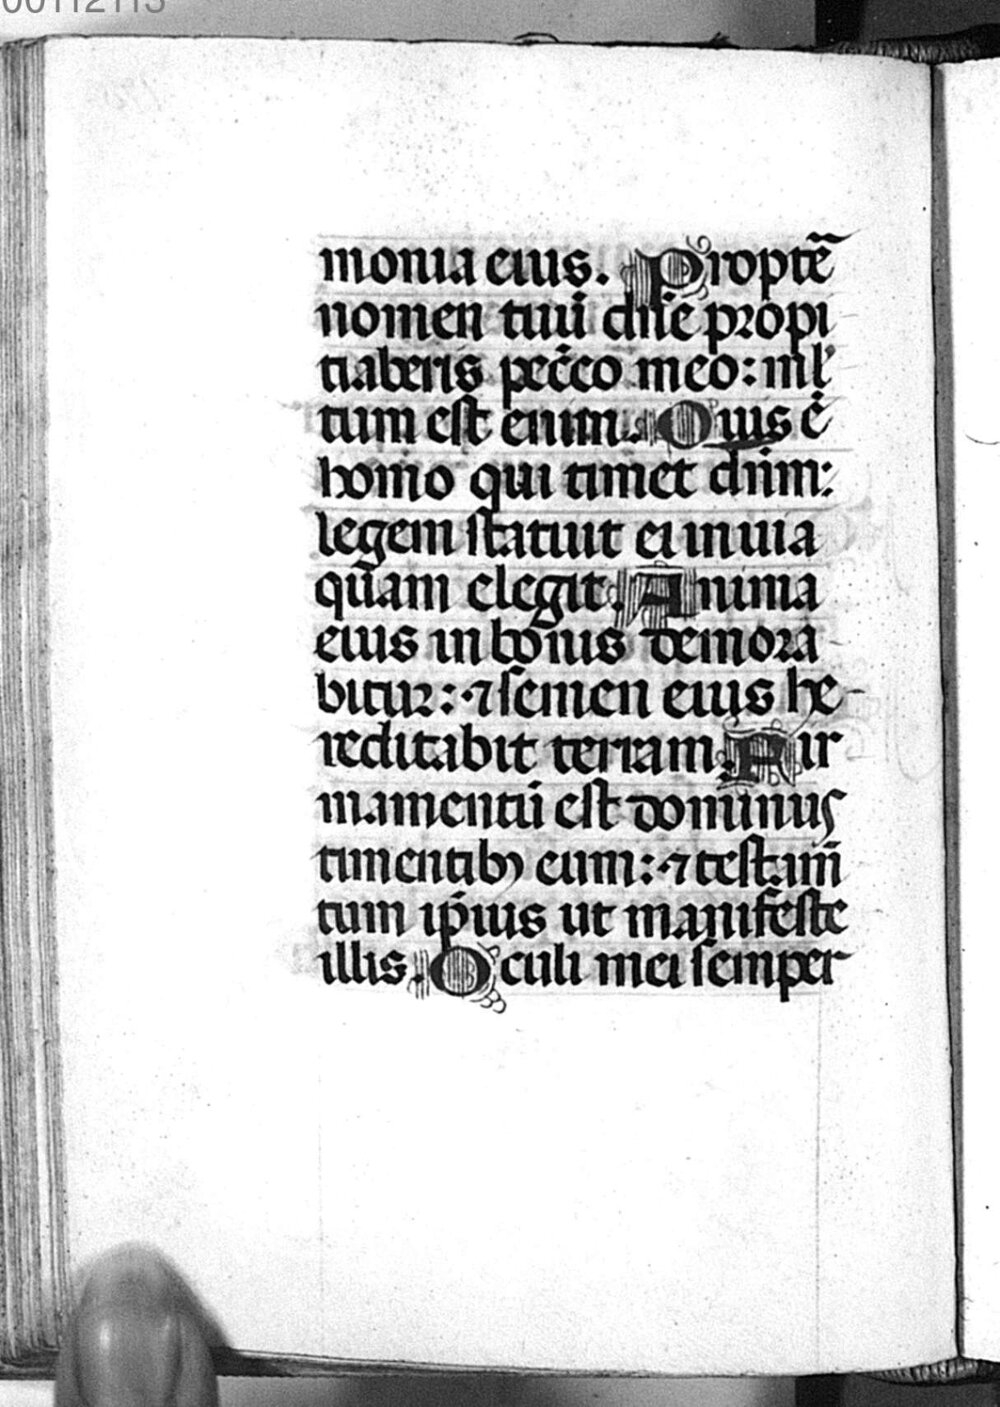 00112113
monia eius. Propte᷑
nomen tuū dn̄e propi
tiaberis pec̄co meo: ml̕
tum est enim. Quis ē
homo qui timet dn̄m:
legem statuit ei in uia
quam elegit. Anima
eius in bonis demora
bitur: ⁊ semen eius he-
reditabit terram. Fir
mamentū est dominus
timentibꝯ eum: ⁊ testam̄
tum ip̄ius ut manifeste
illis. Oculi mei semper